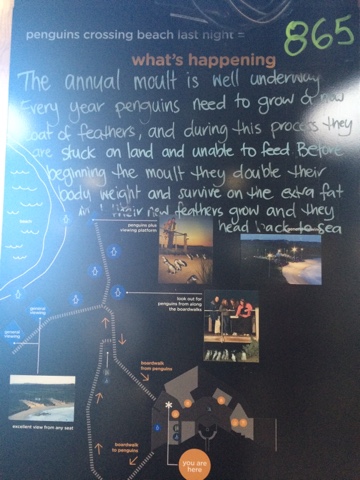 penguins crossing beach last night = 865
what's happening
The annual moult is well underway
Every year penguins need to grow a new
coat of feathers, and during this process they
are stuck on land and unable to feed Before
beginning the moult they double their
body weight and survive on the extra fat
their new feathers grow and they
head back to sea
penguins plus
viewing platform
beach
look out for
penguins from along
the boardwalks
general
viewing
general
viewing
boardwalk
from penguins
excellent view from any seat
boardwalk
to penguins
you are
here